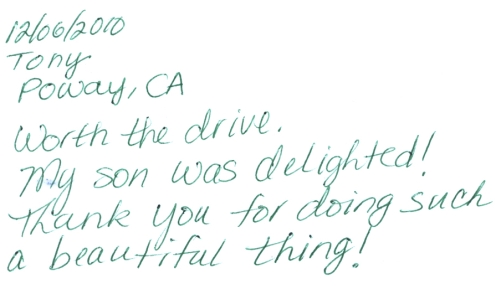 12/06/2010
Tony
Poway, CA
Worth the drive.
My son was delighted!
Thank you for doing such
a beautiful thing!